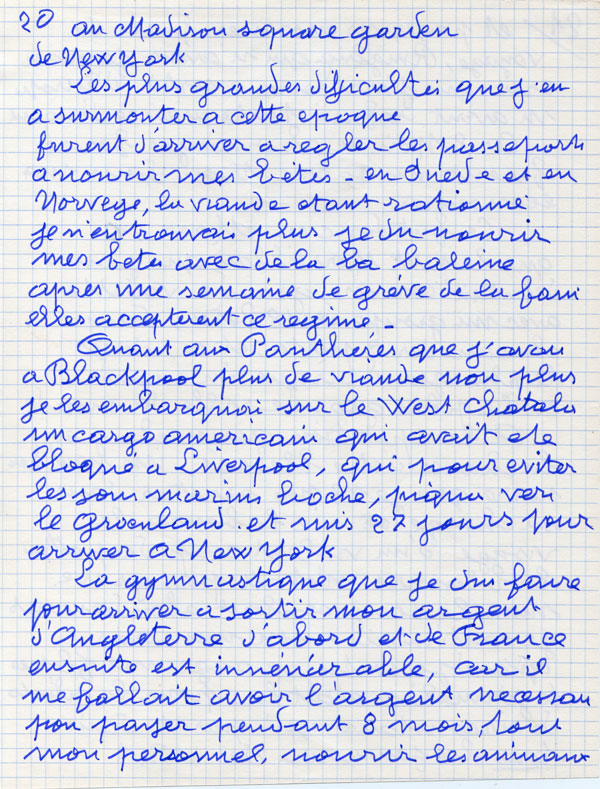 20 au Madison square garden
de New York
Les plus grandes difficultés que j'eu
a surmonter a cette epoque
furent d'arriver a regler les passeports
a nourir mes bêtes - en Suede et en
Norvege, la viande etant rationné
je n'en trouvais plus je du nourir
mes betes avec de la ba baleine
apres une semaine de grève de la faim
elles accepterent ce regime -
Quant aux Panthéres que j'avais
a Blackpool plus de viande non plus
je les embarquai sur le West Chatala
un cargo americain qui avait ete
bloqué a Liverpool, qui pour eviter
les sous marins boche, piqua vers
le Groenland et mis 27 jours pour
arriver a New York
La gymnastique que je dus faire
pour arriver a sortir mon argent
d'Angleterre d'abord et de France
ensuite est, car il
me fallait avoir l'argent necessau
pou payer pendant 8 mois, tout
mon personnel, nourir les animaux